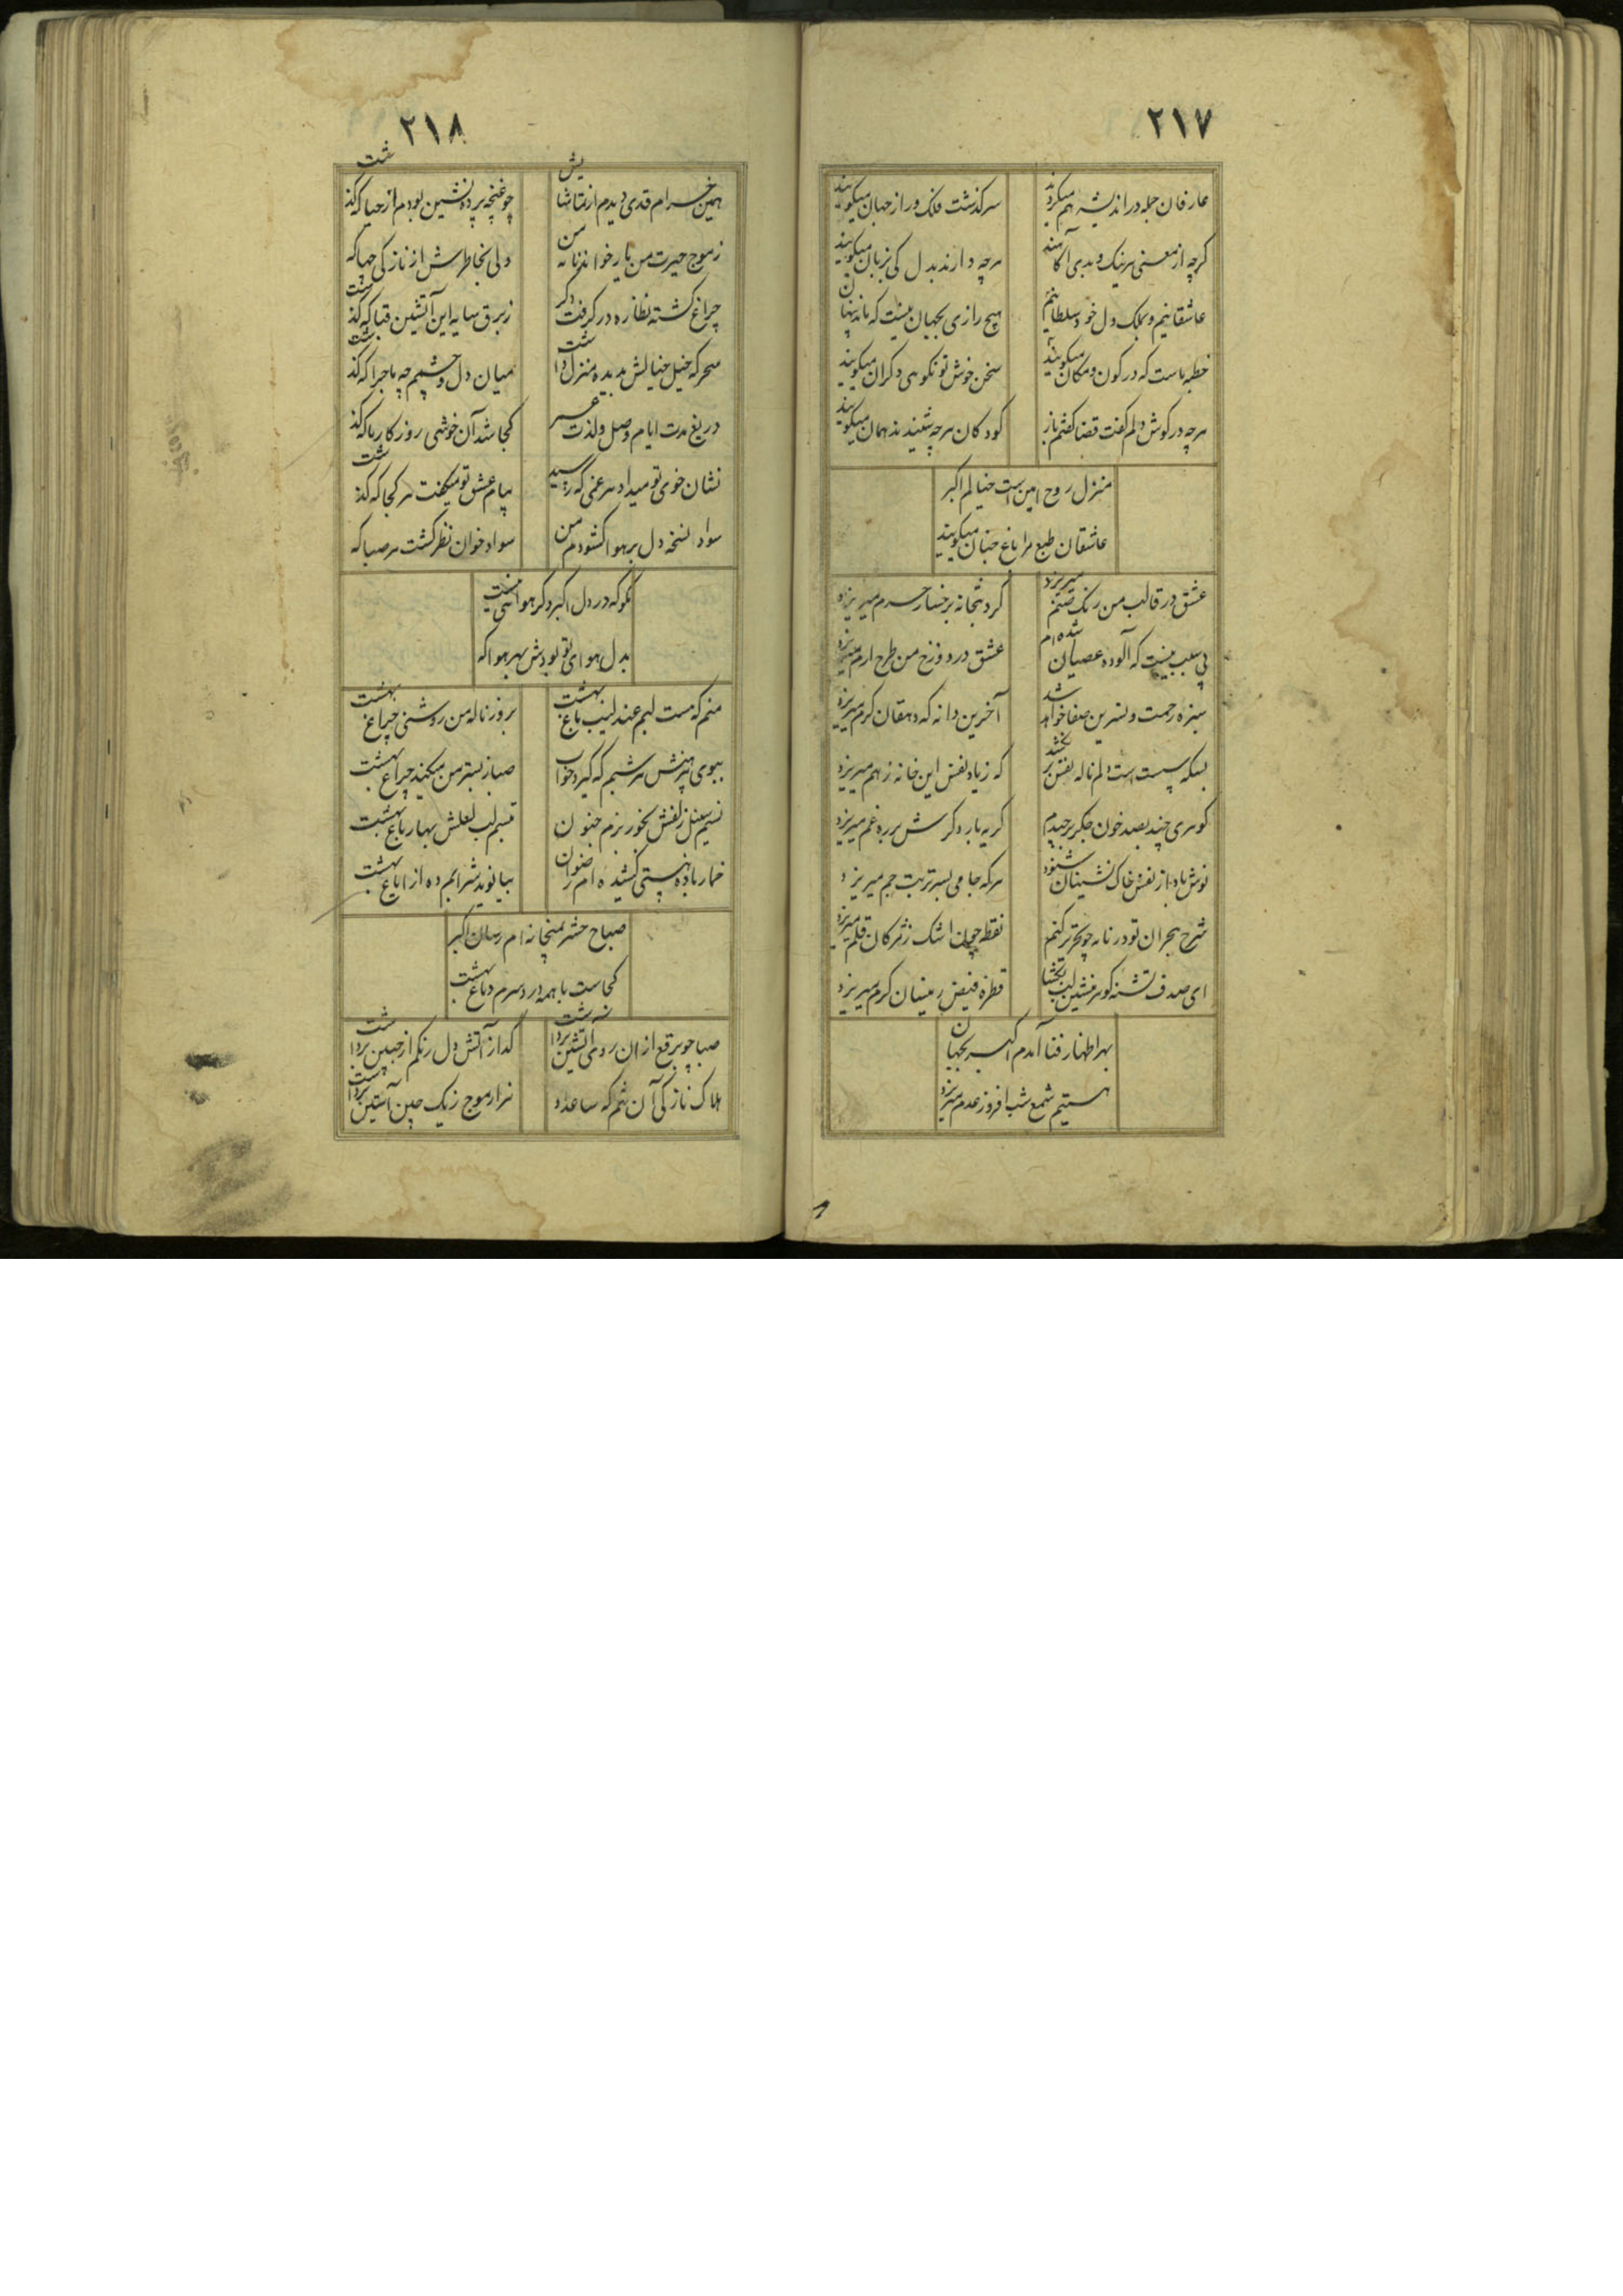 ۲۱۷
عارفان جمله در اندیشه هم میکردند
سرگذشت فلک و راز جهان میکویند
کرچه از معنی هر نیک و بدی آکاهند
هرچه دارند بدل کی بزبان میکویند
عاشقانیم و بملک دل خود سلطانیم
هیچ رازی بجهان نیست که ماند پنهان
خطبه ماست که در کون و مکان میکویند
سخن خوش تو نکوهی دکران میکویند
هرچه در کوش دلم کفت قضا کفتم باز
کودکان هرچه شنیدند همان میکویند
منزل روح امین است خیالم اکبر
عاشقان طبع مرا باغ جنان میکویند
عشق در قالب من رنک صنم میریزد
کرد بتخانه برخسار حرم میریزد
بی سبب نیست که آلوده عصیان شده ام
عشق در دوزخ من طرح ارم میریزد
سبزه رحمت و نسرین صفا خواهد شد
آخرین دانه که دهقان کرم میریزد
بسکه پست است دلم ناله نفس
که زیاد نفس این خانه ز هم میریزد
کوهری چند بصد خون جکر برچیدم
کریه بار دکرش بر ره غم میریزد
نوش باد از نفس خاک نشینان شنود
هرکه جامی بسر تربت جم میریزد
شرح هجران تو در نامه چو تحریر کنم
نقطه چون اشک ز مژکان قلم میریزد
ای صدف تشنه کوهر منشین لب بکشا
قطره فیض ز نیسان کرم میریزد
بهر اظهار فنا آمدم اکبر بجهان
هستیم شمع شب افروز عدم میریزد
۲۱۸
همین خرام قدی دیدم از تماشایش
چو غنچه پرده نشین بودم از حیا که کذشت
ز موج حیرت من یار خواند نامه من
ولی بخاطرش از نازکی چها که
چراغ کشته نظاره در کرفت دکر
ز برق سایه این آتشین قبا که کذشت
سحر که خیل خیالش بدیده منزل داشت
میان دل و چشمم چه ماجرا که کذشت
دریغ مدت ایام وصل و لذت عمر
کجا شد آن خوشی روزکار ما که کذ
نشان خوی تو میداد هر غمی که رسید
پیام عشق تو میکفت هر کجا که کذشت
سواد نسخه دل بر هوا کشودم من
سواد خوان نظر کشت هر صبا که
مکو که در دل اکبر دکر هوائی نیست
بدل هوای تو بودش بهر هوا که
منم که مست لبم عندلیب باغ بهشت
بروز ناله من روشنی چراغ بهشت
ببوی پیرهنش هر شبم که کیرد خواب
صبا ز بستر من میکند چراغ بهشت
نسیم سنبل زلفش بخور بزم جنون
تبسم لب لعلش بهار باغ بهشت
خمار باده هستی کشیده ام رضوان
بیا نوید شرابم ده از ایاغ بهشت
صباح حشر بمیخانه ام رسان اکبر
کجاست با همه درد سرم دماغ بهشت
صبا چو برقع از ان روی آتشین برداشت
کداز آتش دل رنکم از جبین برداشت
هلاک نازکی آن بتم که ساعد او
هزار موج ز یک چین آستین برداشت